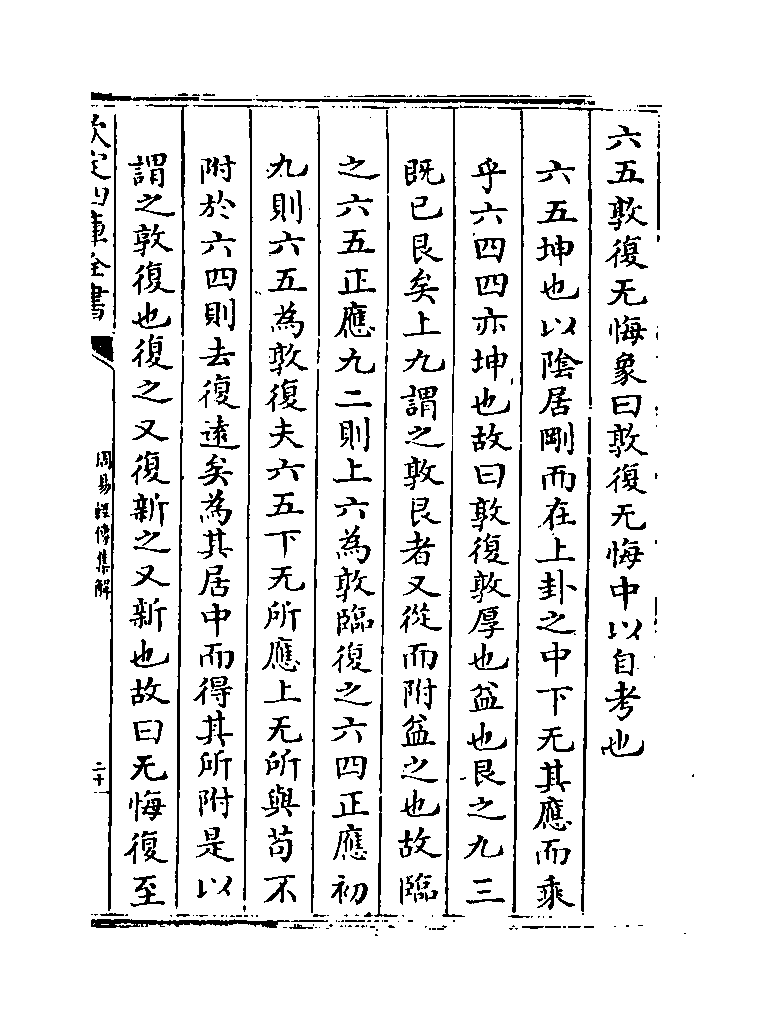 六五敦復无悔象曰敦復无悔中以自考也
六五坤也以陰居剛而在上卦之中下无其應而乘
乎六四四亦坤也故曰敦復敦厚也益也艮之九三
既已艮矣上九謂之敦艮者又從而附益之也故臨
之六五正應九二則上六為敦臨復之六四正應初
九則六五為敦復夫六五下无所應上无所與苟不
附於六四則去復遠矣為其居中而得其所附是以
謂之敦復也復之又復新之又新也故曰无悔復至
欽定四庫全書
周易經傳集解
二十一